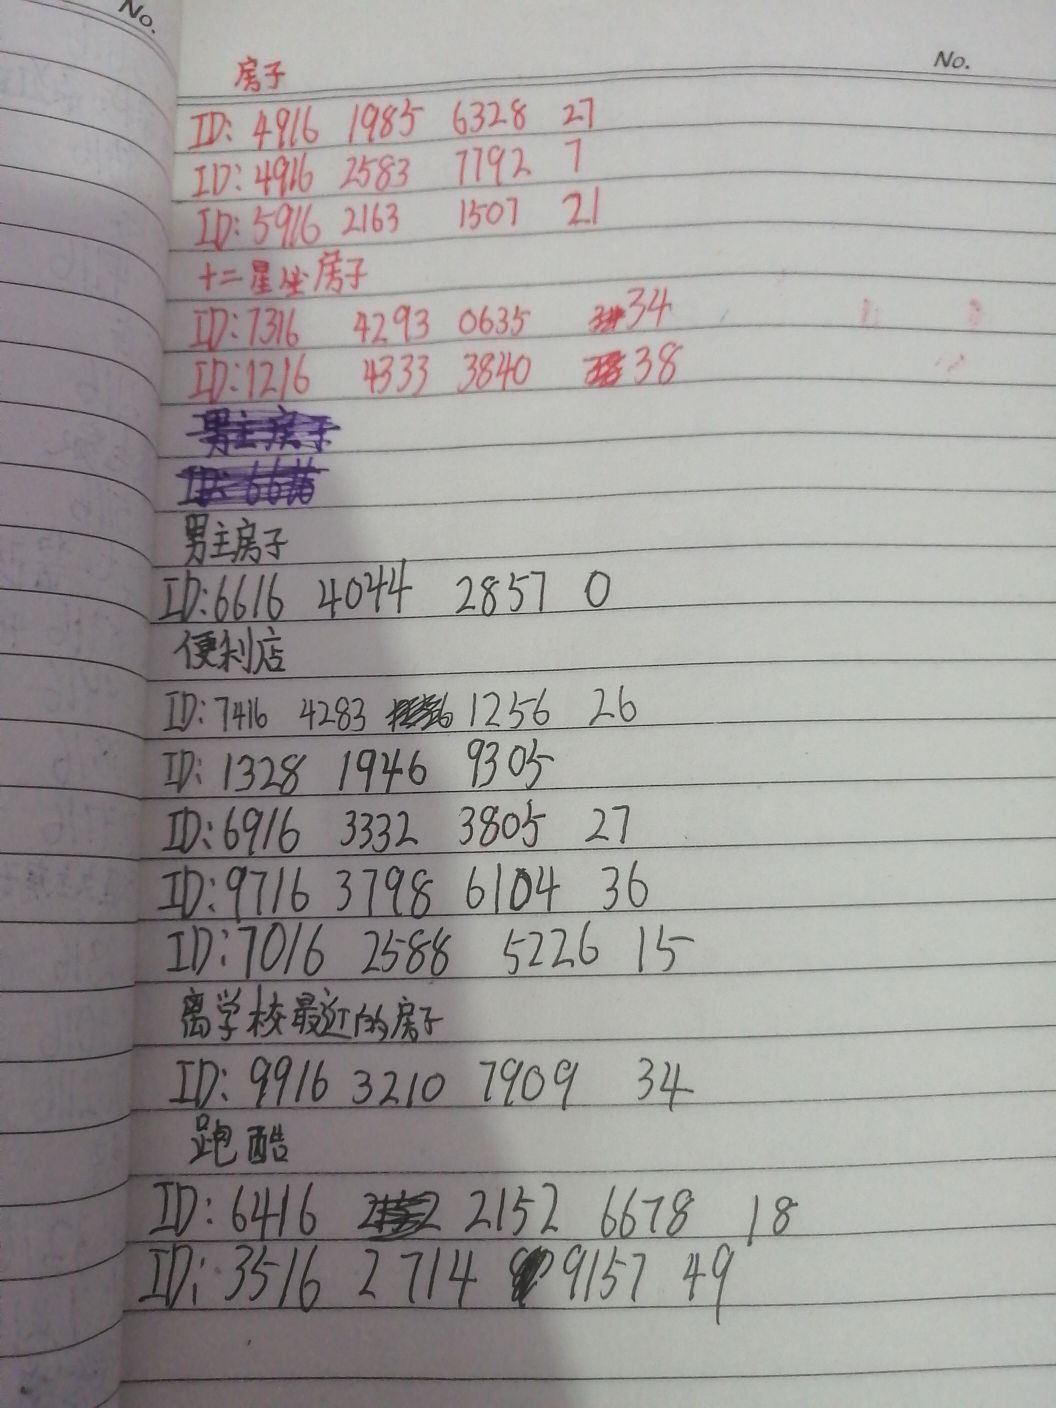 No.
No.
房子
ID: 4916 1985 6328 27
ID: 4916 2583 7792 7
ID: 5916 2163 1507 21
十二星坐房子
ID: 7316 4293 0635 34
ID: 1216 4333 3840 38
男主房子
ID: 6616
男主房子
ID: 6616 4044 2857 0
便利店
ID: 7416 4283 1256 26
ID: 1328 1946 9305
ID: 6916 3332 3805 27
ID: 9716 3798 6104 36
ID: 7016 2588 5226 15
离学校最近的房子
ID: 9916 3210 7909 34
跑酷
ID: 6416 2152 6678 18
ID: 3516 2714 9157 49